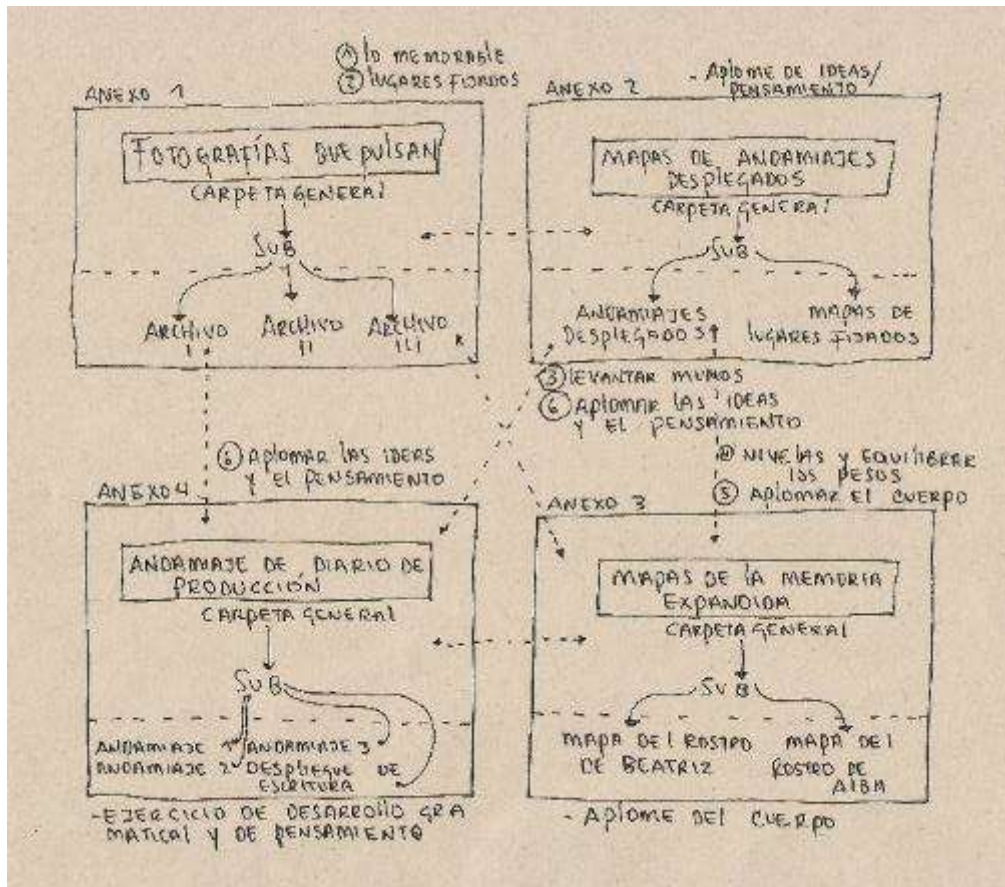 ① lo MEMORABLE
② lUGARES FIJADOS
ANEXO 1
FOTOGRAFÍAS QUE PULSAN
CARPETA GENERAL
SUB
ARCHIVO I
ARCHIVO II
ARCHIVO III
ANEXO 2
- APLOME DE IDEAS/
PENSAMIENTO
MAPAS DE ANDAMIAJES
DESPLEGADOS
CARPETA GENERAL
SUB
ANDAMIAJES
DESPLEGADOS
MAPAS DE
LUGARES FIJADOS
③ LEVANTAR MUROS
⑥ APLOMAR LAS IDEAS
Y EL PENSAMIENTO
⑥ APLOMAR LAS IDEAS
Y EL PENSAMIENTO
④ NIVELAS Y EQUILIBRAR
LOS PESOS
⑤ APLOMAR EL CUERPO
ANEXO 4
ANDAMIAJE DE DIARIO DE
PRODUCCIÓN
CARPETA GENERAL
SUB
ANDAMIAJE 1 ANDAMIAJE 3
ANDAMIAJE 2 DESPLIEGUE DE
ESCRITURA
- EJERCICIO DE DESARROLLO GRA
MATICAL Y DE PENSAMIENTO
ANEXO 3
MAPAS DE LA MEMORIA
EXPANDIDA
CARPETA GENERAL
SUB
MAPA DEL ROSTRO
DE BEATRIZ
MAPA DEL
ROSTRO DE
ALBA
- APLOME DEL CUERPO